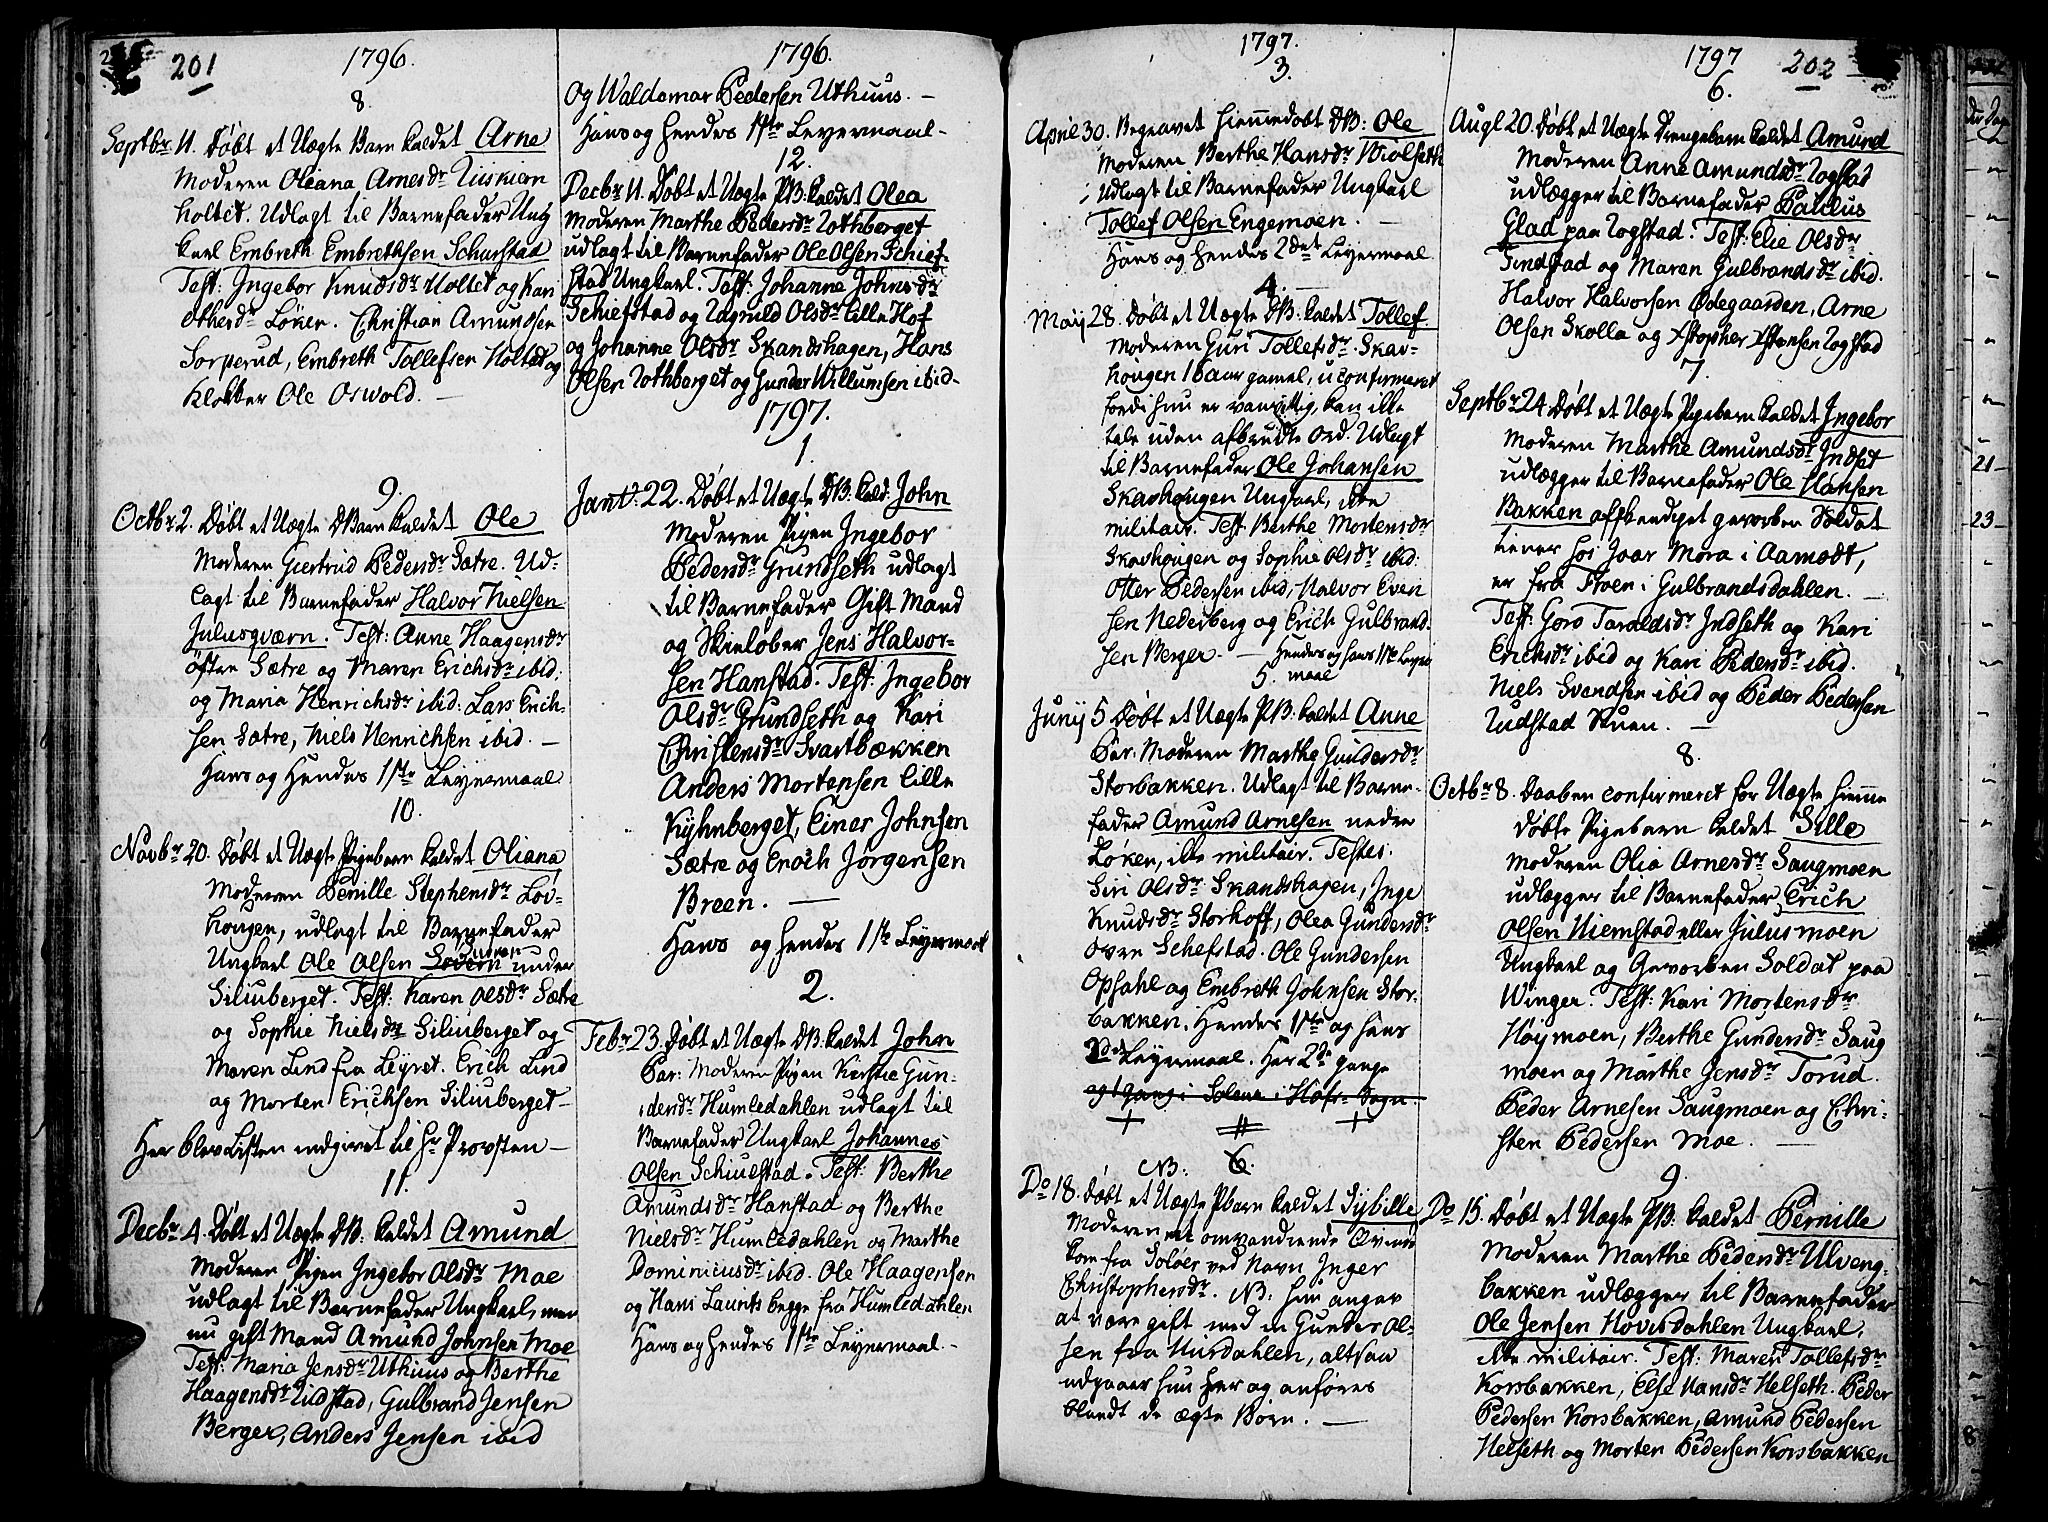 201
1796.
8.
Septbr 11. Døbt et Uægte Barn kaldet Arne
Moderen Oliana Arnesdr
holtet. Udlagt til Barnefader Ung
karl Embreth Embrethsen Schurstad
Test: Ingebor Knudsdr Holtet og Kari
Othersdr Løken. Christian Amundsen
Sorperud, Embreth Tollefsen Holtet og
Klokker Ole Oswold. —
9.
Octbr 2. Døbt et Uægte DBarn kaldet Ole
Moderen Giertrud Pedersdr Sætre. Ud-
lagt til Barnefader Halvor Nielsen
Julusqværn. Test: Anne Haagensdr
østen Sætre og Maren Erichsdr ibid:
og Maria Henrichsdr ibid: Lars Erich-
sen Sætre, Niels Henrichsen ibid. —
Hans og Hendes 1ste Leyermaal
10.
Novbr 20. Døbt et Uægte Pigebarn kaldet Oliana
Moderen Pernille Stephensdr Lov-
hougen, udlagt til Barnefader
Ungkarl Ole Olsen under
Siliuberget. Test: Karen Olsdr Sætre
og Sophie Nielsdr Siliuberget og
Maren Lind fra Leyret. Erich Lind
og Morten Erichsen Siliuberget —
Her blev Listen indgivet til Hr Provsten —
11.
Decbr 4. Døbt et Uægte DB: kaldet Amund
Moderen Pigen Ingebor Olsdr Moe
udlagt til Barnefader Ungkarl, men
nu gift Mand Amund Johnsen Moe
Test: Maria Jensdr Uthuus og Berthe
Haagensdr Udstad, Gulbrand Jensen
Berger, Anders Jensen ibid
1796.
Og Waldemar Pedersen Uthuus. —
Hans og Hendes 1ste Leyermaal —
12.
Decbr 11. Døbt et Uægte PB: kaldet Olea
Moderen Marthe Pedersdr Lothberget
udlagt til Barnefader Ole Olsen Schief-
stad Ungkarl. Test: Johanne Johnsdr
Schiefstad og Ragnild Olsdr Lille Hof
og Johanne Olsdr Skandshagen, Hans
Olsen Lothberget og Gunder Willumsen ibid —
1797.
1
Janv: 22. Døbt et Uægte DB: kald: John
Moderen Pigen Ingebor
Pedersdr Grundseth udlagt
til Barnefader Gift Mand
og Skieløber Jens Halvor-
sen Hanstad. Test: Ingebor
Olsdr Grundseth og Kari
Christensdr Svartbækken
Anders Mortensen Lille
Kyhnberget, Einer Johnsen
Sætre og Enoch Jørgensen
Breen. —
Hans og Hendes 1ste Leyermaal
2.
Febr 23. Døbt et Uægte DB: kaldet John
Par: Moderen Pigen Kirstie Gun-
dersdr Humledahlen udlagt til
Barnefader Ungkarl Johannes
Olsen Schiulstad. Test: Berthe
Amundsdr Hanstad og Berthe
Nielsdr Humledahlen og Marthe
Dominicusdr ibid. Ole Haagensen
og Hans Lauritz begge fra Humledahlen
Hans og Hendes 1ste Leyermaal. —
1797.
3.
April 30. Begravet Hiemmedøbt DB: Ole
Moderen Berthe Hansdr Kiolseth
Udlagt til Barnefader Ungkarl
Tollef Olsen Engemoen. —
Hans og Hendes 2det Leyermaal
4.
Maij 28. Døbt et Uægte DB: kaldet Tollef
Moderen Guri Tollefsdr Skav-
hougen 18 aar gamel, uconfirmeret
fordi hun er vanvittig, kan ille
tale uden afbrudte Ord. Udlagt
til Barnefader Ole Johansen
Skavhougen Ungkarl, ikke
militair. Test: Berthe Mortensdr
Skavhougen og Sophie Olsdr ibid:
Otter Pedersen ibid, Halvor Even
sen Nederberg og Erich Gulbrand-
sen Berger. — Hendes og Hans 1ste Leyer
maal
5.
Junij 5 Døbt et Uægte PB: kaldet Anne
Par: Moderen Marthe Gundersdr
Storbakken. Udlagt til Barne-
fader Amund Arnesen nedre
Løken, ikke militair. Testes:
Siri Olsdr Skandshagen, Inge
Knudsdr Storhoff, Olea Gundersdr
oven Schefstad. Ole Gundersen
Opsahl og Embreth Johnsen Stor-
bakken. Hendes 1ste og Hans
2det Leyermaal. Her 2de Gange
og 1 gang i Soløer i Hofs Sogn.
+ # +
NB: 6
Do 18. Døbt et Uægte PBarn kaldet Sybille
Moderen et omvandrende Qvinde
kom fra Soløer ved Navn Inger
Christophersdr. NB: hun angav
at være gift med en Gunder Ol-
sen fra Nusdahlen, altsaa
udgaaer hun her og anføres
blandt de ægte Børn. —
1797
202
6.
Augt 20. Døbt et Uægte Drengebarn kaldet Amund
Moderen Anne Amundsdr Logstad
udlægger til Barnefader Paulus
Glad paa Logstad. Test: Elie Olsdr
Tindstad og Maren Gulbrandsdr ibid.
Halvor Halvorsen Ødegaarden, Arne
Olsen Skolla og Xstopher Xstensen Logstad
7.
Septbr 24. Døbt et Uægte Pigebarn kaldet Ingebor
Moderen Marthe Amundsdr Indset
udlægger til Barnefader Ole Hansen
Bakken afskediget gevorben Soldat
tiener hos Joar Mora i Aamodt,
er fra Froen i Gulbrandsdahlen. —
Test: Goro Taraldsdr Indseth og Kari
Erichsdr ibid og Kari Pedersdr ibid.
Niels Svendsen ibid og Peder Pedersen
Rudstad Stuen. —
8.
Octbr 8. Daaben confirmeret for Uægte hiemme
døbte Pigebarn kaldet Sille
Moderen Olia Arnesdr Saugmoen
udlægger til Barnefader Erich
Olsen Hiemstad eller Julusmoen
Ungkarl og Gevorben Soldat paa
Winger. Test: Kari Mortensdr
Høymoen, Berthe Gundersdr Saug
moen og Marthe Jensdr Torud.
Peder Arnesen Saugmoen og Chri-
sten Pedersen Moe. —
9.
Do 15. Døbt et Uægte PB: kaldet Pernille
Moderen Marthe Pedersdr Ulveng-
bakken udlægger til Barnefader
Ole Jensen Hovisdahlen Ungkarl,
ikke militair. Test: Maren Tollefsdr
Korsbakken, Else Hansdr Helseth. Peder
Pedersen Korsbakken, Amund Pedersen
Helseth og Morten Pedersen Korsbakken
21
23